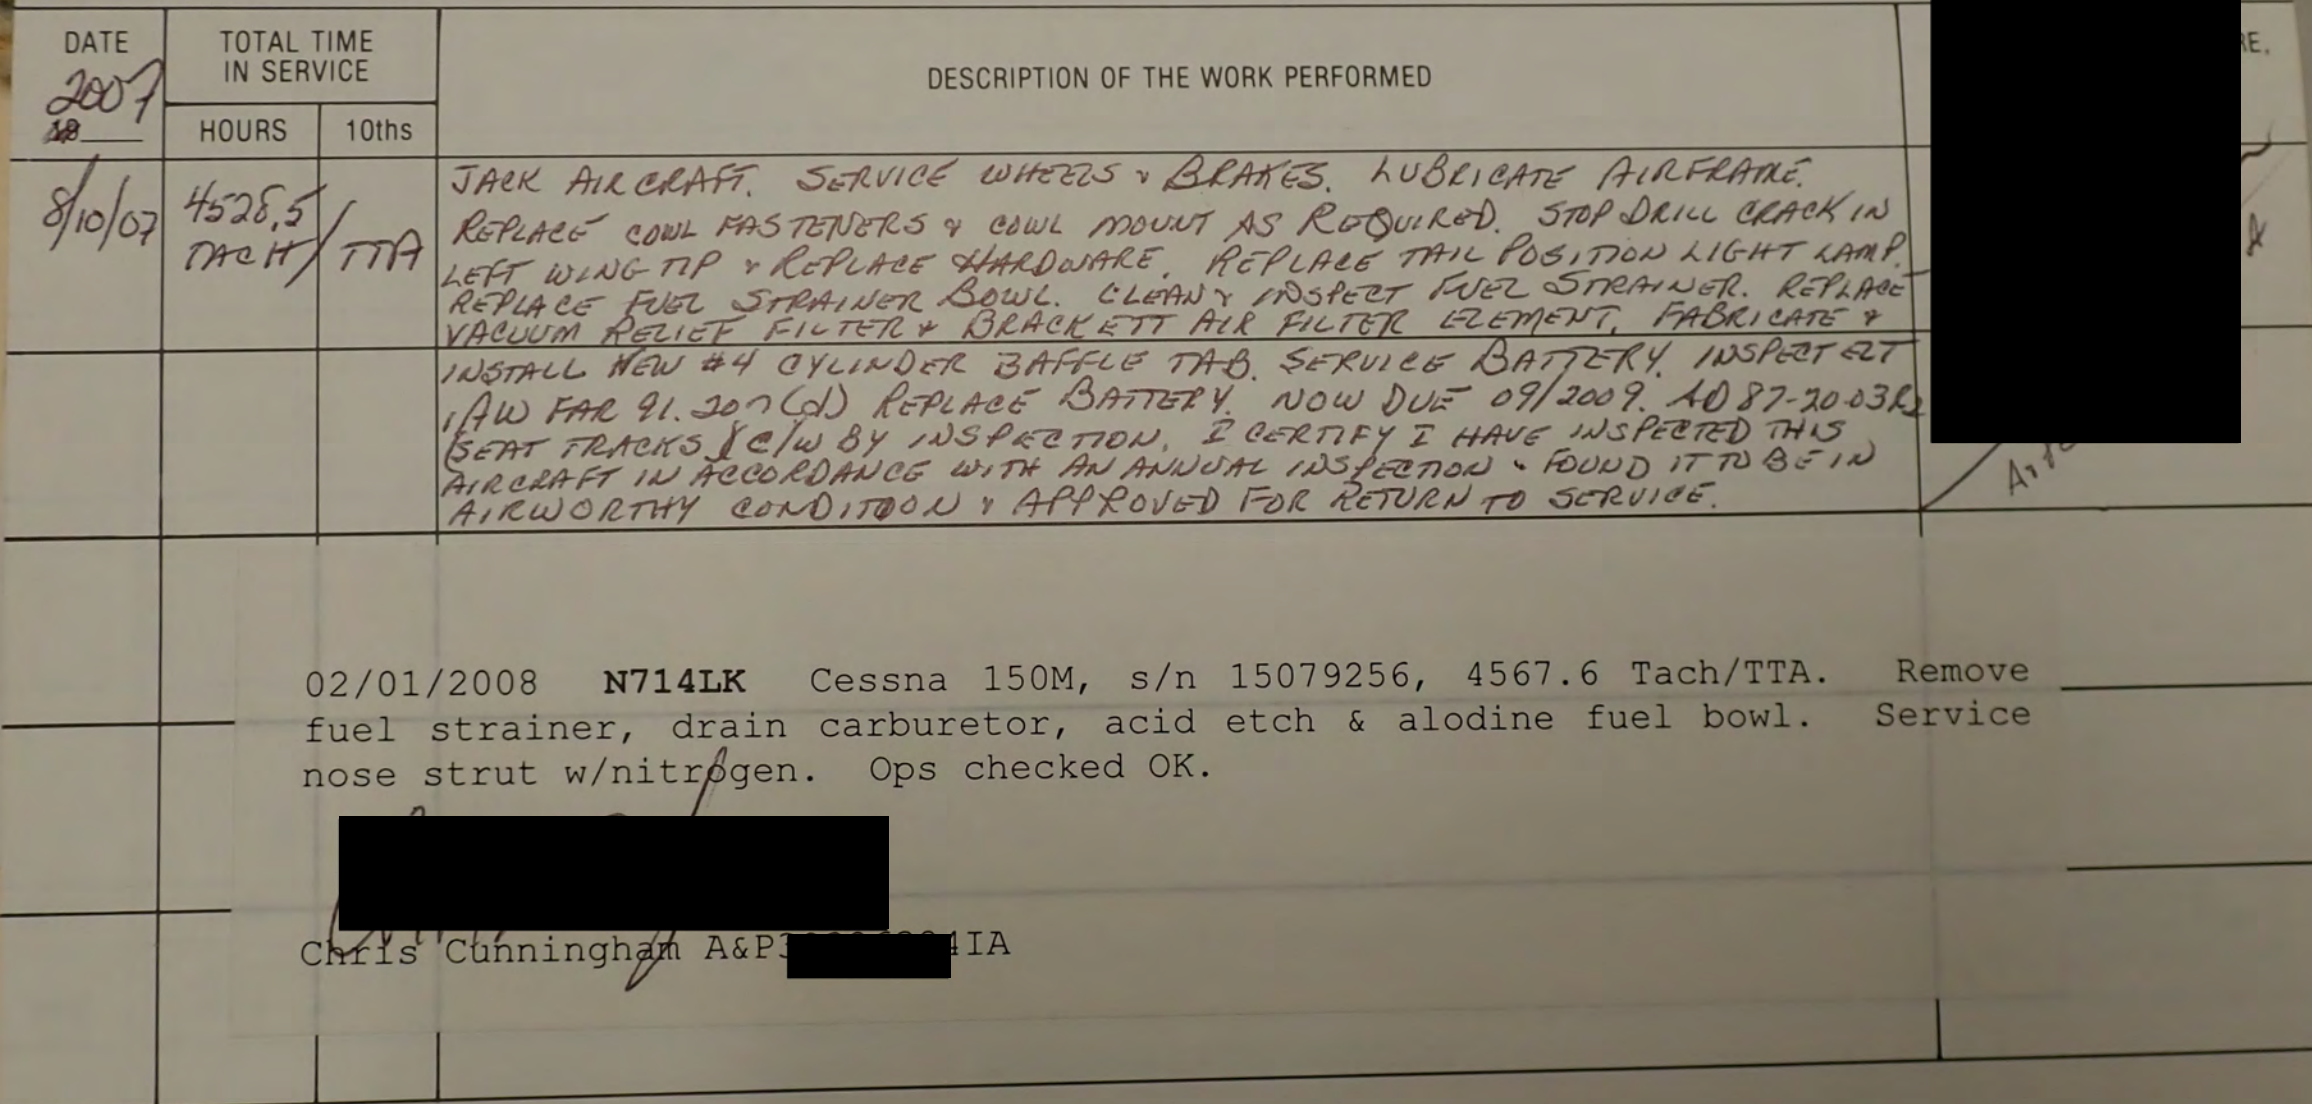 DATE
TOTAL TIME
IN SERVICE
DESCRIPTION OF THE WORK PERFORMED
RE,
2007
19
HOURS
10ths
8/10/07
4528.5
TACH / TTA
JACK AIRCRAFT. SERVICE WHEELS & BRAKES. LUBRICATE AIRFRAME.
REPLACE COWL FASTENERS & COWL MOUNT AS REQUIRED. STOP DRILL CRACK IN
LEFT WING TIP & REPLACE HARDWARE. REPLACE TAIL POSITION LIGHT LAMP.
REPLACE FUEL STRAINER BOWL. CLEAN & INSPECT FUEL STRAINER. REPLACE
VACUUM RELIEF FILTER & BRACKETT AIR FILTER ELEMENT. FABRICATE &
INSTALL NEW #4 CYLINDER BAFFLE TAB. SERVICE BATTERY. INSPECT ELT
IAW FAR 91.207(d) REPLACE BATTERY. NOW DUE 09/2009. AD 87-20-03R2
(SEAT TRACKS) C/W BY INSPECTION. I CERTIFY I HAVE INSPECTED THIS
AIRCRAFT IN ACCORDANCE WITH AN ANNUAL INSPECTION & FOUND IT TO BE IN
AIRWORTHY CONDITION & APPROVED FOR RETURN TO SERVICE.
02/01/2008 N714LK Cessna 150M, s/n 15079256, 4567.6 Tach/TTA. Remove
fuel strainer, drain carburetor, acid etch & alodine fuel bowl. Service
nose strut w/nitrogen. Ops checked OK.
Chris Cunningham A&P3 4IA